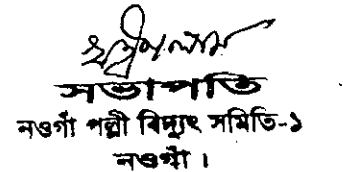 সভাপতি
নওগাঁ পল্লী বিদ্যুৎ সমিতি-১
নওগাঁ ।